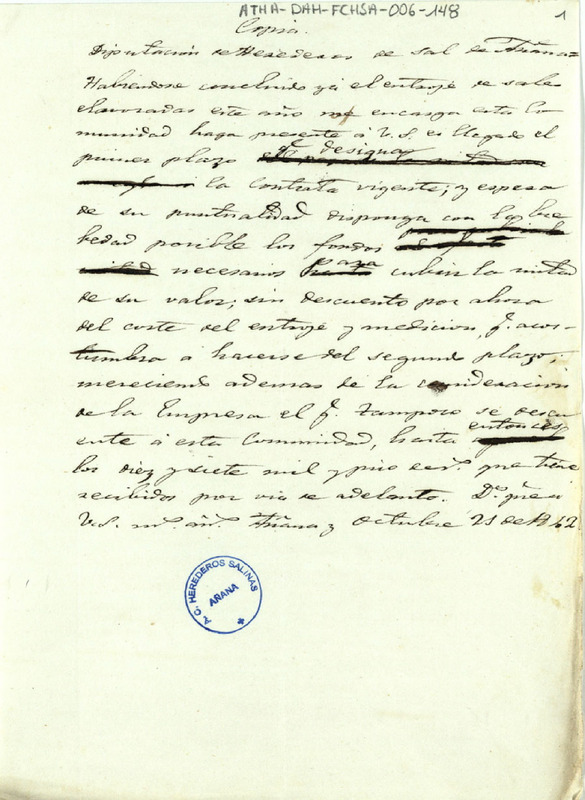 ATHA-DAH-FCHSA-006-148
1
Copia.
Diputación de Herederos de Sal de Añana =
Habiendose concluido ya el entroje de sales
elavoradas este año me encarga esta Co-
munidad haga presente á V.S. es llegado el
primer plazo q.e designa
la Contrata vigente; y espera
de su puntualidad disponga con la bre
bedad posible los fondos
necesarios para cubrir la mitad
de su valor; sin descuento por ahora
del coste del entroje y medicion, q.e acos-
tumbra á hacerse del segundo plazo;
mereciendo ademas de la consideracion
de la Empresa el q.e tampoco se descu
ente á esta Comunidad, hasta entonces
los diez y siete mil y pico rs. que tiene
recibidos por via de adelanto. D.s gue. á
V.S. m.s añ.s Añana y Octubre 21 de 1862
A. C. HEREDEROS SALINAS
AÑANA